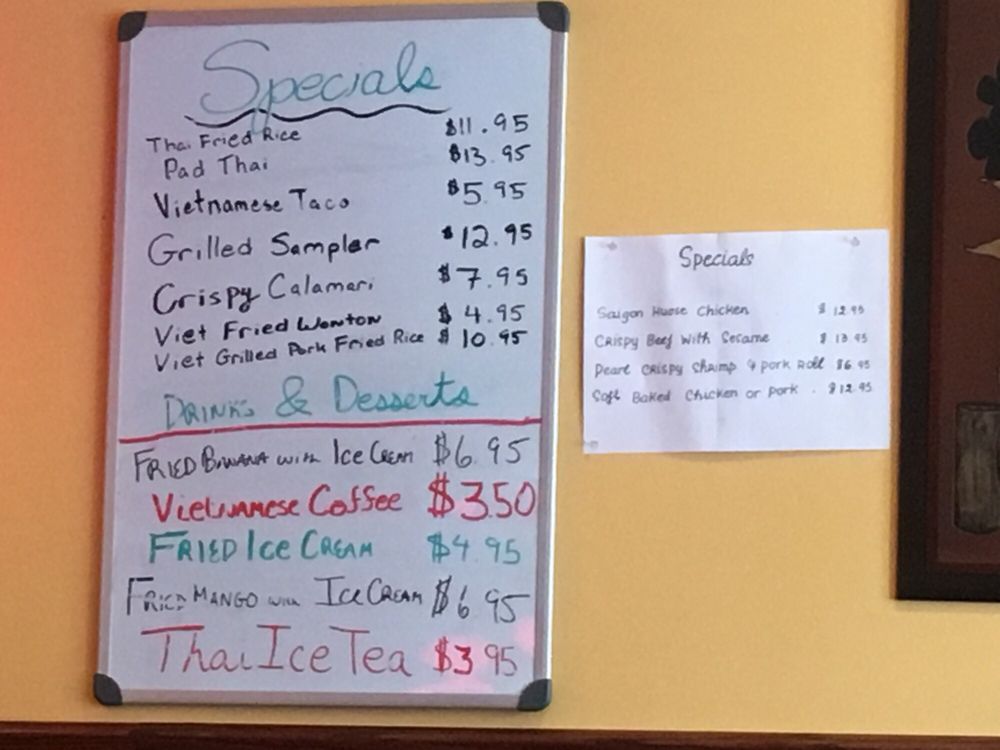 Specials
Thai Fried Rice $11.95
Pad Thai $13.95
Vietnamese Taco $5.95
Grilled Sampler $12.95
Crispy Calamari $7.95
Viet Fried Wonton $4.95
Viet Grilled Pork Fried Rice $10.95
DRINKS & Desserts
FRIED BANANA with Ice Cream $6.95
Vietnamese Coffee $3.50
FRIED Ice CREAM $4.95
FRIED MANGO with Ice CREAM $6.95
Thai Ice Tea $3.95
Specials
Saigon House Chicken $12.95
CRispy Beef With Sesame $13.95
Pearl CRispy Shrimp & pork Roll $6.95
Soft Baked Chicken or pork . $12.95